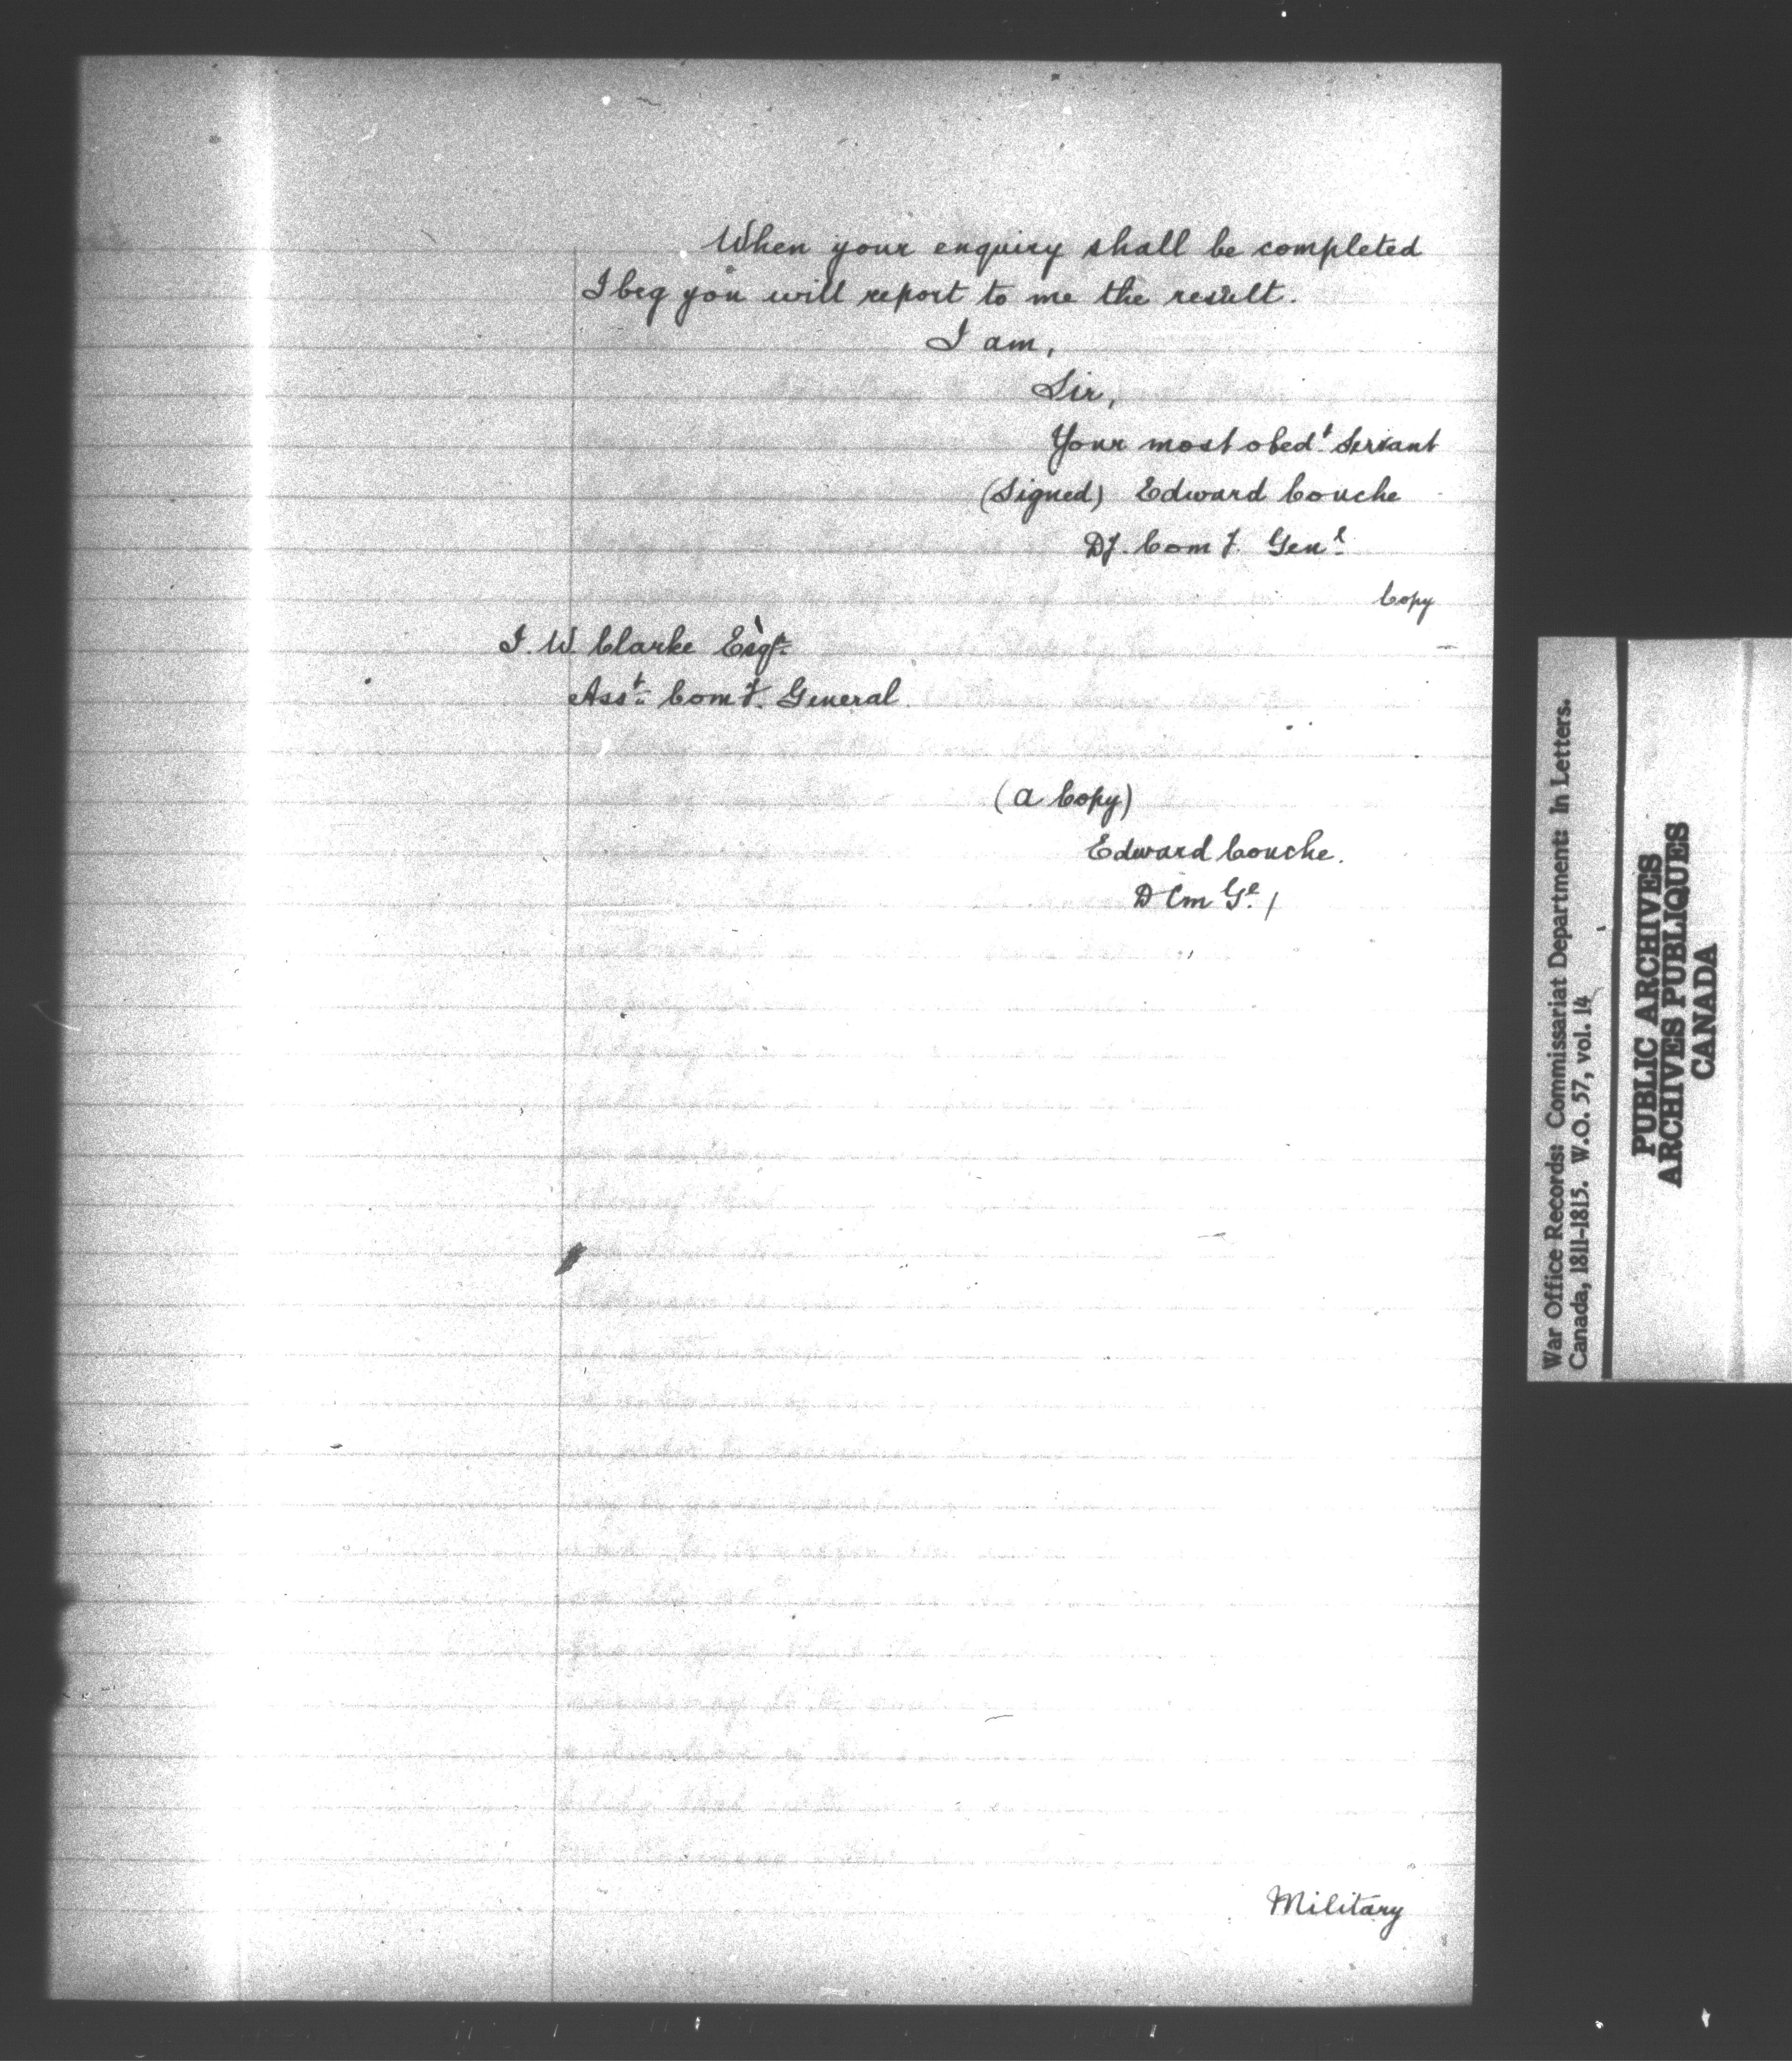 When your enquiry shall be completed
I beg you will report to me the result.
I am,
Sir,
Your most obedt. Servant
(Signed) Edward Couche
Dy. Comy. Genl.
Copy
I. W. Clarke Esqr.
Asst. Comy. General
(a Copy)
Edward Couche.
D Cm Gl. /
Military
War Office Records: Commissariat Department: In Letters.
Canada, 1811-1815. W.O. 57, vol. 14
PUBLIC ARCHIVES
ARCHIVES PUBLIQUES
CANADA